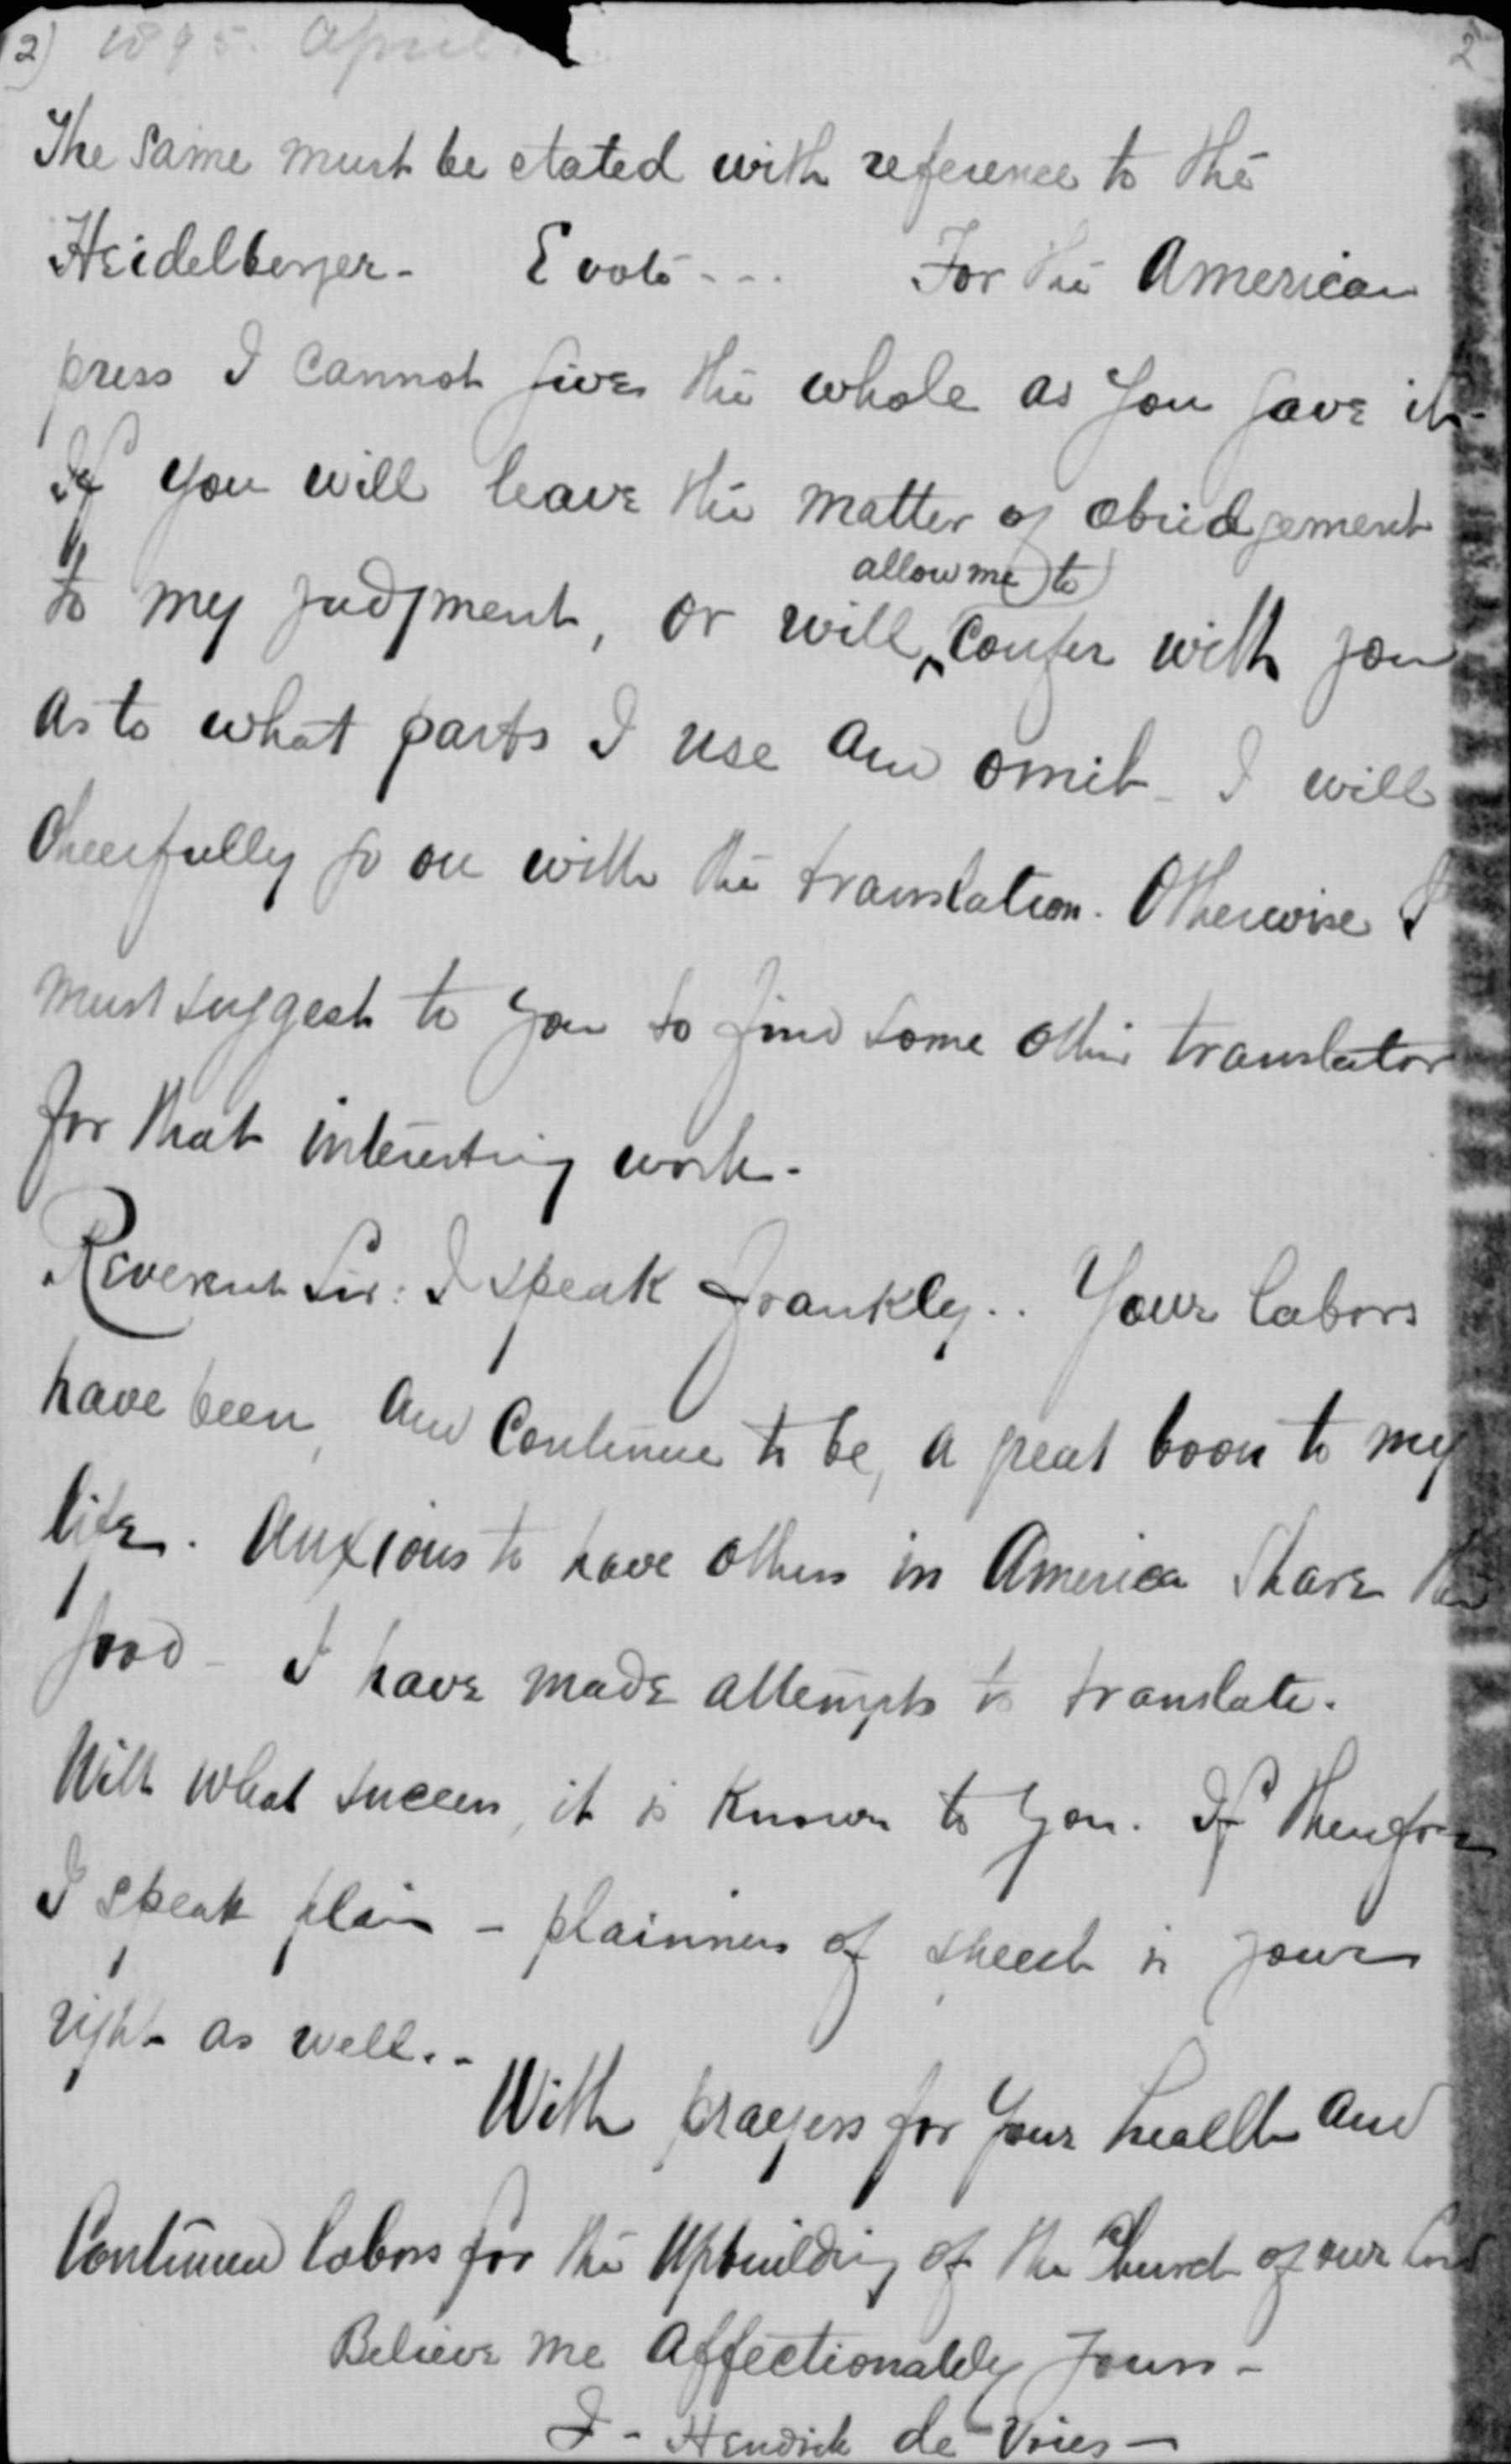 2) 1895. April. 2
The same must be stated with reference to the
Heidelberger - E voto - - . For the American
press I cannot give the whole as you gave it -
If you will leave the matter of abridgement
to my judgment, or will allow me to confer with you
as to what parts I use and omit - I will
cheerfully go on with the translation. Otherwise I
must suggest to you to find some other translator
for that interesting work -
Reverent Sir: I speak frankly. . Your labors
have been, and continue to be, a great boon to my
life. Anxious to have others in America share the
good - I have made attempts to translate.
With what success, it is known to you. If therefore
I speak plain - plainness of speech is your
right as well. -
With prayers for your health and
continued labors for the upbuilding of the Church of our Lord
Believe me affectionately yours -
J - Hendrik de Vries -